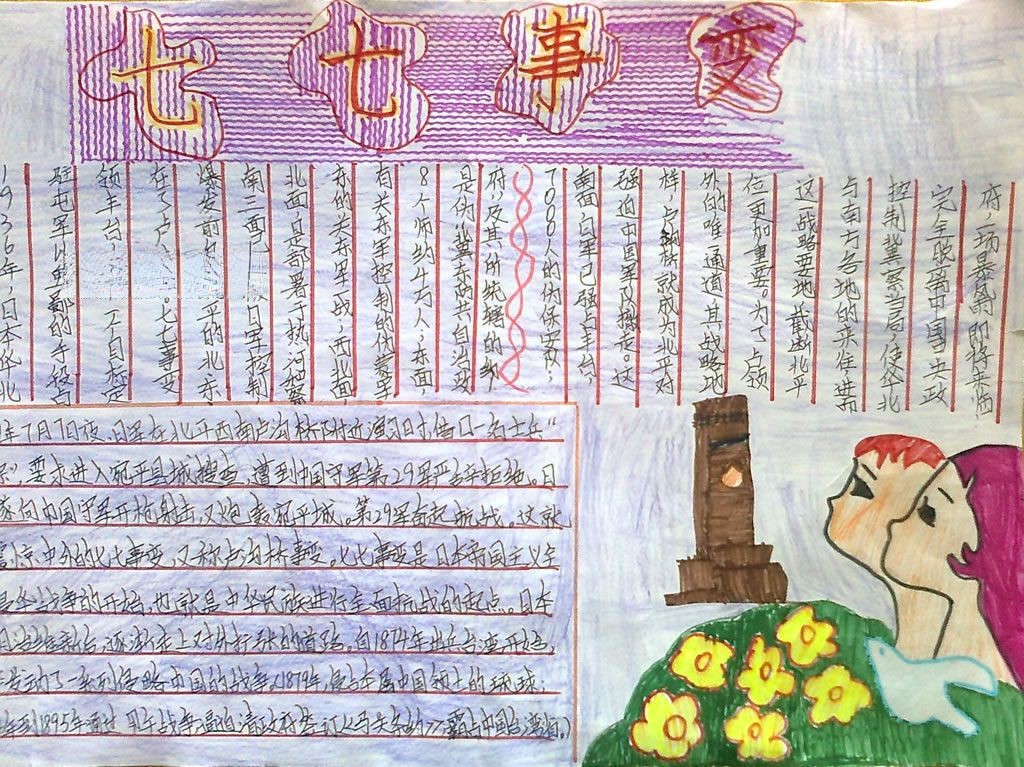 七七事变
1936年,日本华北
驻屯军以的手段占
领丰台,
在了卢。七七事变
爆发前夕,平的北东
南三面已日军控制
北面,是部署于热河和察
东的关东军一部;西北面,
有关东军控制的伪蒙军
8个师约4万人;东面,
是伪冀东防共自治政
府,及其所统辖的约
7000人的伪保安队;
南面日军已强占丰台,
强迫中国军队撤走。这
样,卢沟桥就成为北平对
外的唯一通道,其战略地
位更加重要。为了占领
这一战略要地,截断北平
与南方各地的来往,进而
控制冀察当局,使华北
完全脱离中国中央政
府,一场暴即将来临
年7月7日夜,日军在北平西南卢沟桥附近演习时,借口一名士兵"
"要求进入宛平县城搜查,遭到中国守军第29军严辞拒绝。日
遂向中国守军开枪射击,又炮轰宛平城。第29军奋起抗战。这就
震惊中外的七七事变,又称卢沟桥事变。七七事变是日本帝国主义全
侵华战争的开始,也就是中华民族进行全面抗战的起点。日本
明治维新后,逐渐走上对外行的道路。自1874年出兵台湾开始,
发动了一系列侵略中国的战争。1879年,侵占本属中国领土的琉球;
年到1895年通过甲午战争逼迫清政府签订《马关条约》霸占中国台湾